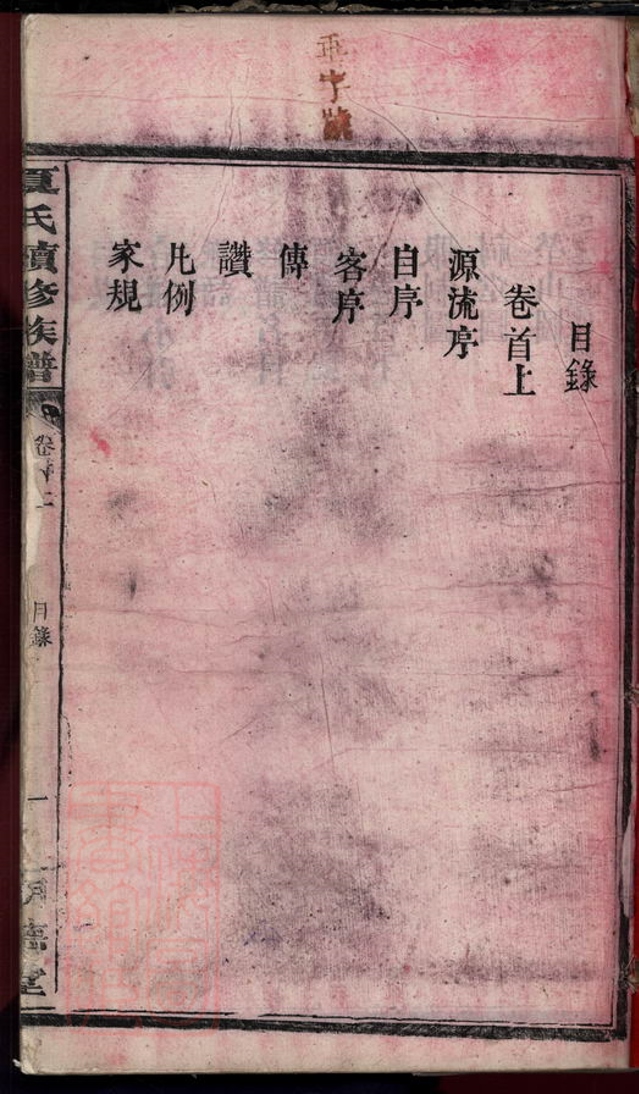 目錄
卷首上
源流序
自序
客序
傳
讚
凡例
家規
夏氏續修族譜
卷首上
目錄
一
明德堂
字號